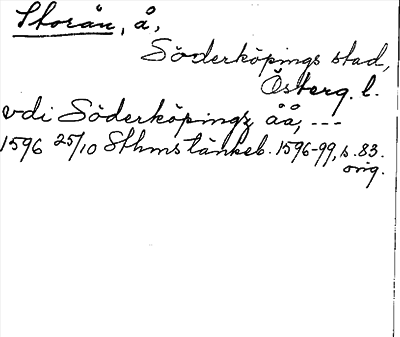 Storån, å,
Söderköpings stad,
Österg. l.
vdi Söderköpingz åå, ---
1596 25/10 Sthms tänkeb. 1596-99, s. 83.
orig.